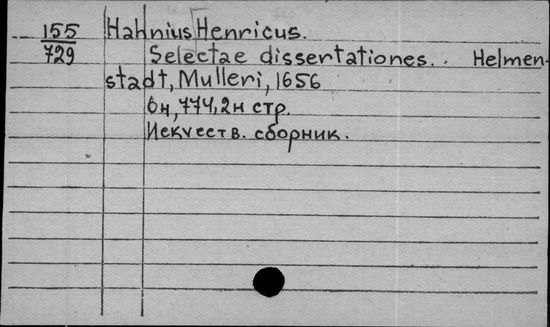 155 Hahnius Henricus.
729 Selectae dissertationes. Helmen-
stadt, Mulleri, 1656
6н, 774, 2н стр.
Искусств. сборник.